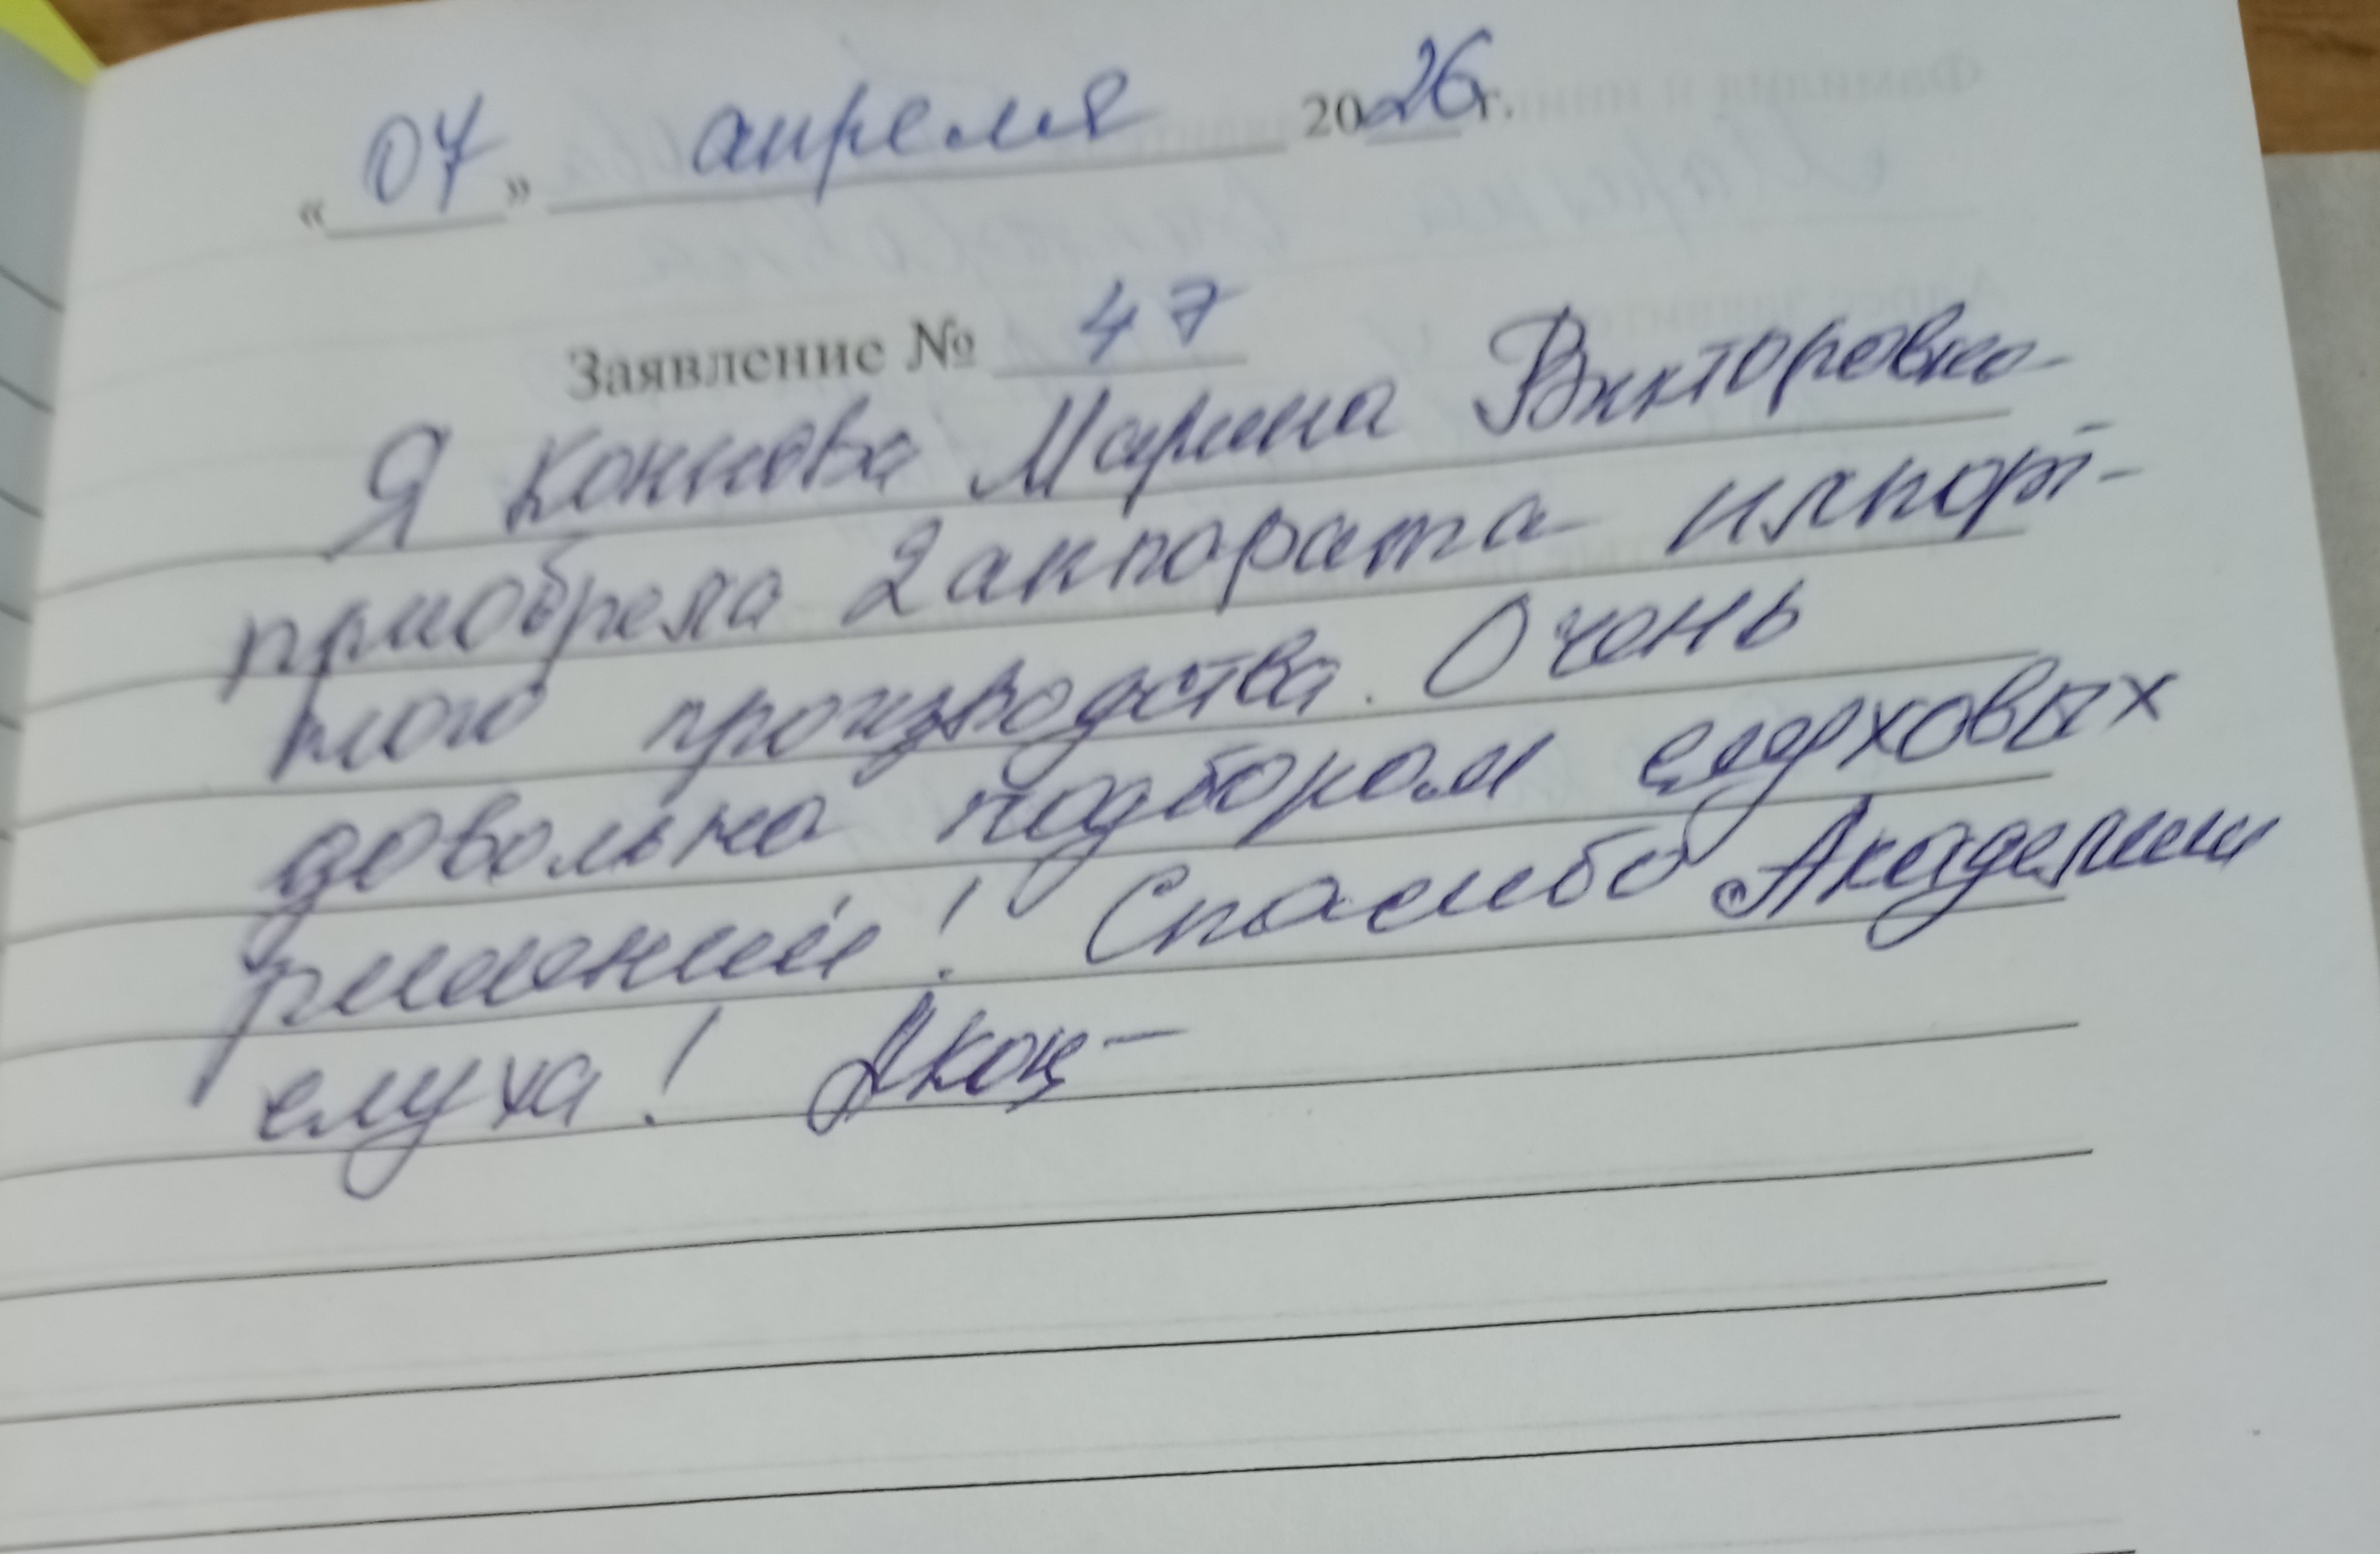 «07» апреля 2026г.
Заявление № 47
Я Коннова Марина Викторовна
приобрела 2 аппарата импорт-
ного производства. Очень
довольна подбором слуховых
решений! Спасибо Академии
слуха!